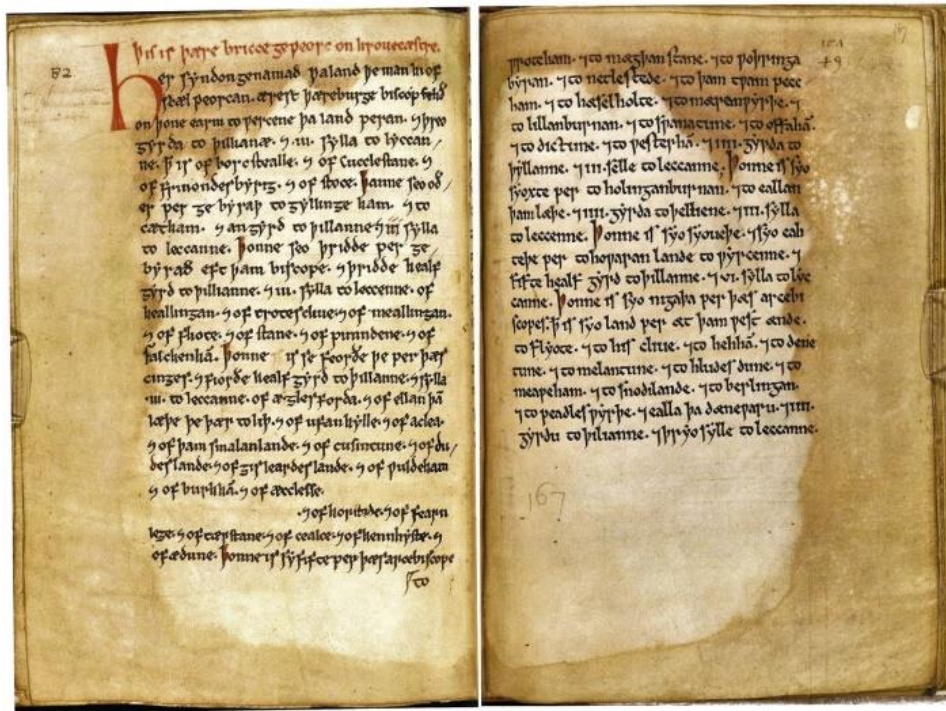 Þis is þære bricce geƿeorc on hrouecæstre.
B2
Her syndon genamad þa land þe man hi of
scæl ƿeorcan. ærest þære burge biscop fehð
on þone earm to ƿercene þa land peran. ⁊ þreo
gyrda to þillianæ. ⁊ .iii. sylla to lyccan
ne. þ is of borcstealle. ⁊ of cucclestane. ⁊
of frinondesbyrig. ⁊ of stoce. Þanne seo oð,
er per ge byraþ to gyllinge ham. ⁊ to
cætham. ⁊ an gyrd to þillanne ⁊ iii sylla
to leccanne. Þonne seo þridde per ge
byrað eft þam biscope. ⁊ þridde healf
gyrd to þillianne. ⁊ .iii. sylla to leccenne. of
heallingan. ⁊ of trotescliue. ⁊ of meallingan.
⁊ of fliote. ⁊ of stane. ⁊ of pinindene. ⁊ of
falchenhā. Þonne is se feorðe þe per þæs
cinges. ⁊ fiorðe healf gyrd to þillanne. ⁊ sylla
.iii. to leccanne. of æglesforda. ⁊ of ellan þā
læþe þe þær to liþ. ⁊ of ufan hylle. ⁊ of aclea.
⁊ of þam smalanlande. ⁊ of cusintune. ⁊ of du,
deslande. ⁊ of gisleardeslande. ⁊ of ƿuldeham
⁊ of burhhā. ⁊ of æcclesse.
⁊ of horstede. ⁊ of fearn
lege. ⁊ of cærstane. ⁊ of cealce. ⁊ of hennhyste. ⁊
of ædune. Þonne is sy fifte per þæs arcebiscope
to
ƿroteham. ⁊ to mægþan stane. ⁊ to ƿohringa
byran. ⁊ to netlestede. ⁊ to þam tƿam pecc
ham. ⁊ to hæselholte. ⁊ to mæranƿyrþe. ⁊
to lillanburnan. ⁊ to sƿanatune. ⁊ to offahā.
⁊ to dictune. ⁊ to ƿesterhā. ⁊ .iiii. gyrda to
þyllanne. ⁊ .iii. selle to leccanne. Þonne is syo
syoxte per to holinganburnan. ⁊ to eallan
þam læþe. ⁊ .iiii. gyrda to þelliene. ⁊ .iiii. sylla
to leccenne. Þonne is syo syoueþe. ⁊ syo eah
teþe per to hoƿaran lande to ƿyrcenne. ⁊
fifte healf gyrd to þillanne. ⁊ .vi. sylla to lyc
canne. Þonne is syo nigaþa per þæs arcebi
scopes. þ is syo land per æt þam ƿest ænde.
to flyote. ⁊ to his cliue. ⁊ to hehhā. ⁊ to dene
tune. ⁊ to melantune. ⁊ to hludes dune. ⁊ to
meapeham. ⁊ to snodilande. ⁊ to berlingan.
⁊ to peadles ƿyrþe. ⁊ ealla þa dæneƿaru. ⁊ .iiii.
gyrdu to þilianne. ⁊ þryo sylle to leccanne.
167